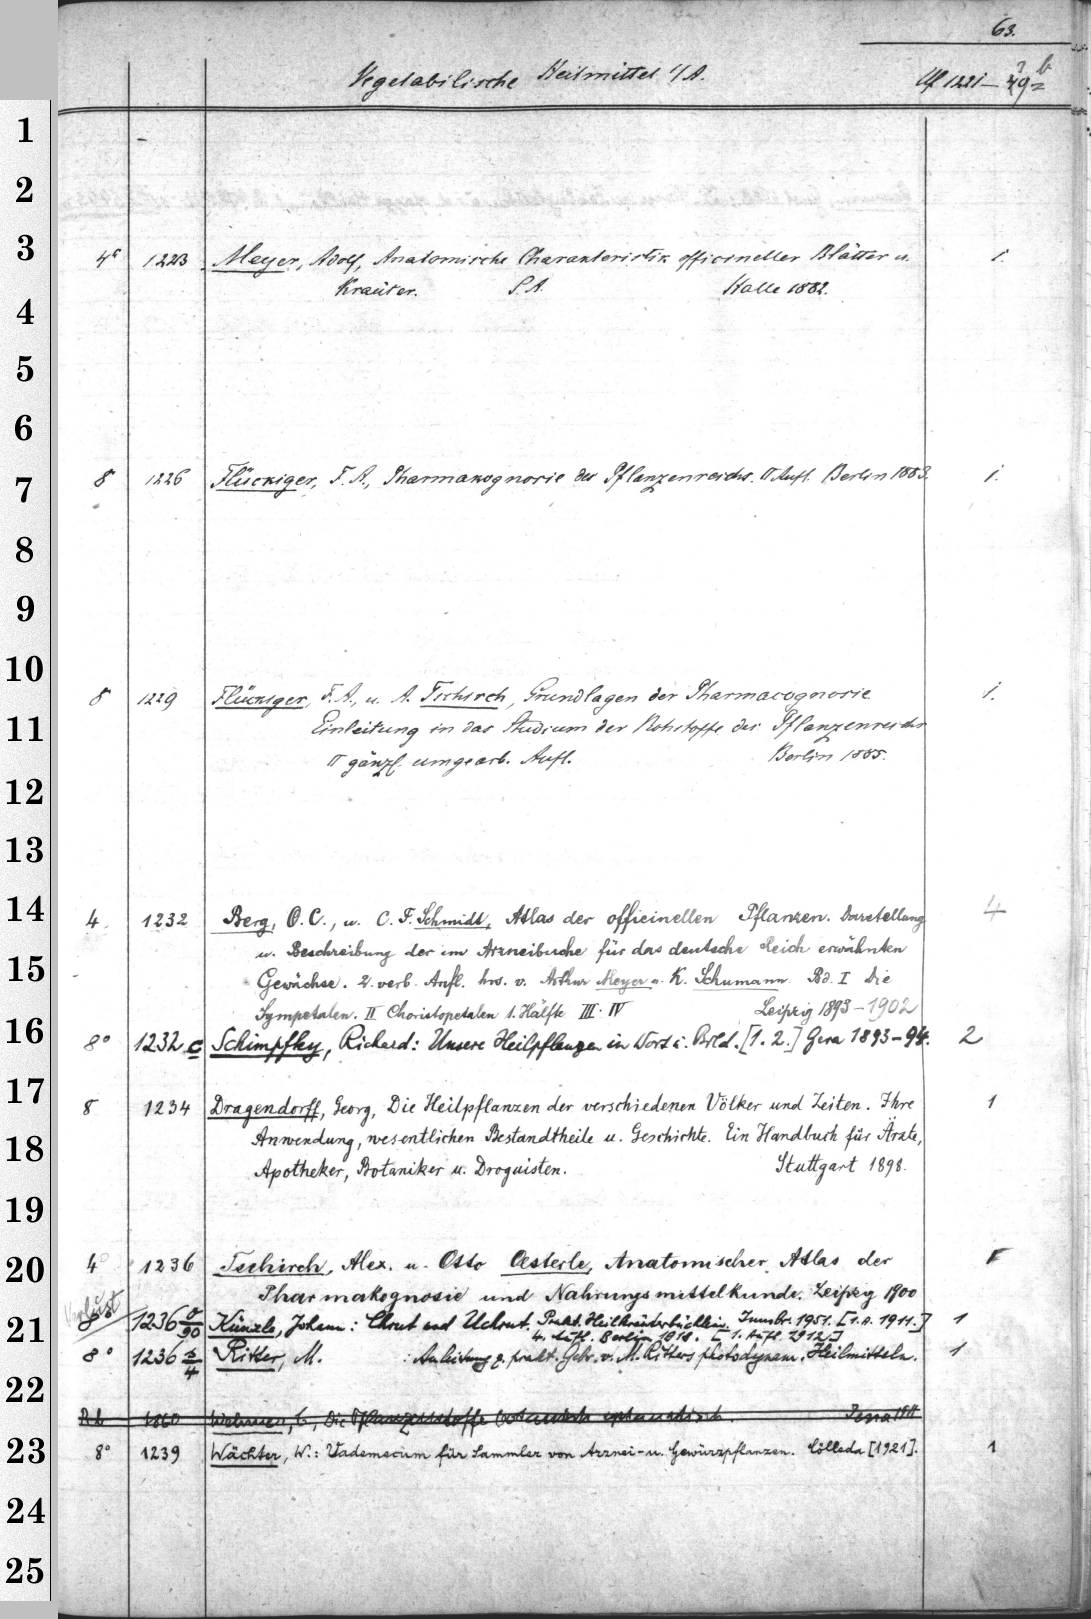 63.
Vegetabilische Heilmittel s/A. Uf 1221—
4° 1223 Meyer, Adolf, Anatomische Charakteristik officineller Blätter u. 1.
Kräuter. S.A. Halle 1882.
8 1226 Flückiger, F. A., Pharmakognosie des Pflanzenreichs. II Aufl. Berlin 1883. 1.
8 1229 Flückiger, F. A., u. A. Tschirch, Grundlagen der Pharmacognosie 1.
Einleitung in das Studium der Rohstoffe des Pflanzenreichs
II gänzl. umgearb. Aufl. Berlin 1885.
4. 1232 Berg, O. C., u. C. F. Schmidt, Atlas der officinellen Pflanzen. Darstellung 4
u. Beschreibung der im Arzneibuche für das deutsche Reich erwähnten
Gewächse. 2. verb. Aufl. hrs. v. Arthur Meyer u. K. Schumann Bd. I Die
Sympetalen. II Choristopetalen 1. Hälfte III. IV Leipzig 1893–1902
8° 1232 c Schimpfky, Richard: Unsere Heilpflanzen in Wort u. Bild. [1. 2.] Gera 1893–94. 2
8 1234 Dragendorff, Georg, Die Heilpflanzen der verschiedenen Völker und Zeiten. Ihre 1
Anwendung, wesentlichen Bestandtheile u. Geschichte. Ein Handbuch für Ärzte,
Apotheker, Botaniker u. Droguisten. Stuttgart 1898.
4° 1236 Tschirch, Alex. u. Otto Oesterle, Anatomischer Atlas der
Pharmakognosie und Nahrungsmittelkunde. Leipzig 1900
Verlust
8° 1236 Künzle, Johann: Chrut und Uchrut. Prakt. Heilkräuterbüchlein. Innsbr. 1951. [1. A. 1911.] 1
4. Aufl. Berlin [1. Aufl. 1912.]
8° 1236 Ritter, M. : Anleitung z. prakt. Gebr. v. M. Ritters photodynam. Heilmitteln. 1
1860 Wehmer, C., Die Pflanzenstoffe botanisch Jena 1911
8° 1239 Wächter, W.: Vademecum für Sammler von Arznei- u. Gewürzpflanzen. Cölleda [1921]. 1
1
2
3
4
5
6
7
8
9
10
11
12
13
14
15
16
17
18
19
20
21
22
23
24
25